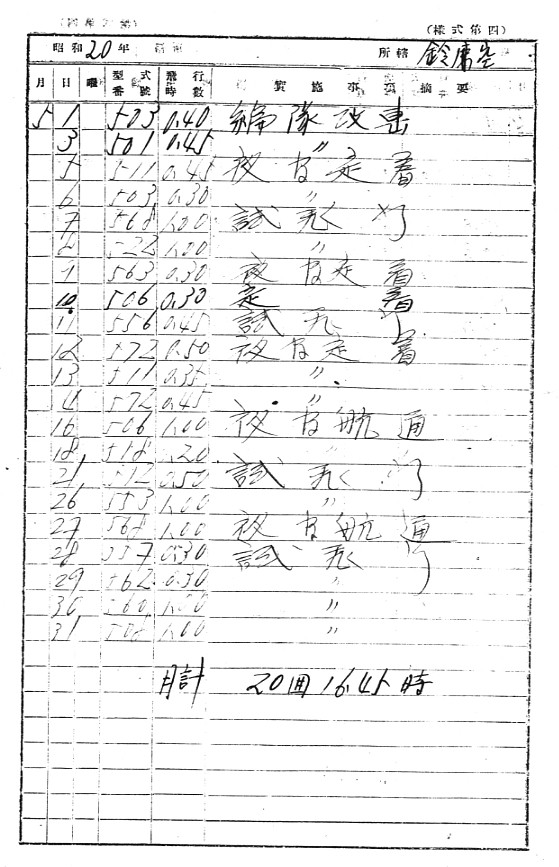 (樣式第四)
昭和20年 所轄 鈴鹿空
月 日 曜 型式番號 飛行時數 實施事項摘要
5 1 503 0.40 編隊攻擊
3 501 0.45 〃
5 511 0.45 夜間定着
6 503 0.30 〃
7 568 1.00 試飛
522 1.00 〃
563 0.30 夜間定着
10 506 0.30 定着
11 556 0.45 試飛
12 572 0.50 夜間定着
13 511 0.35 〃
572 0.45 〃
16 506 1.00 夜間航通
18 518 .20 〃
21 512 0.50 試飛
26 553 1.00 〃
27 568 1.00 夜間航通
28 557 0.30 試飛
29 562 0.30 〃
30 560 1.00 〃
31 508 1.00 〃
月計 20回 16.45時